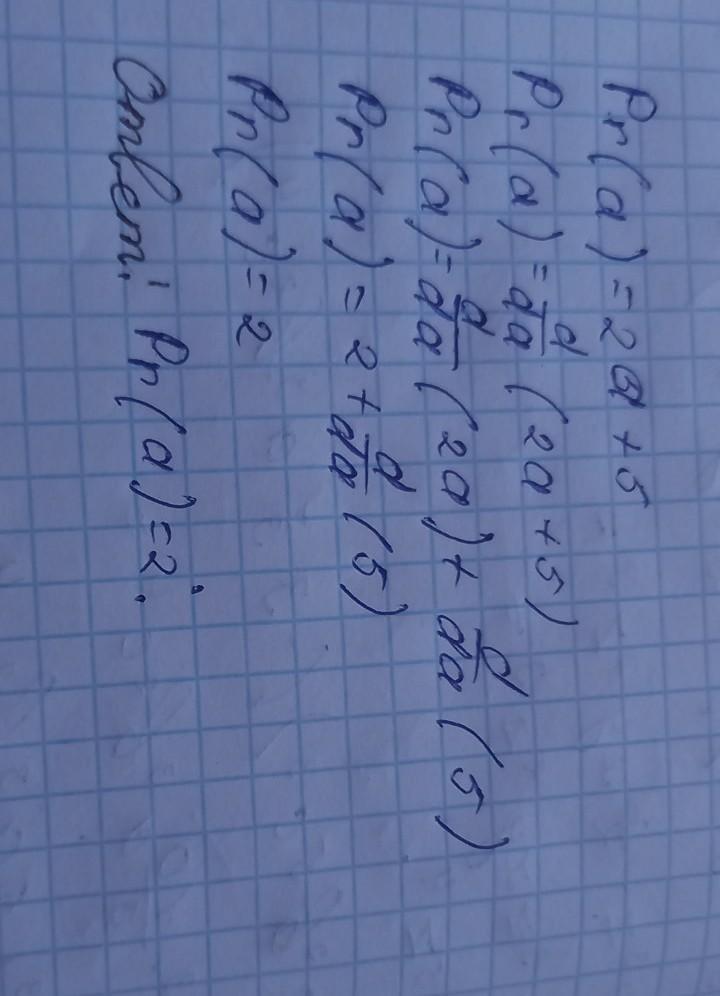 Pr(a) = 2a + 5
Pr(a) = d/da (2a + 5)
Pr(a) = d/da (2a) + d/da (5)
Pr(a) = 2 + d/da (5)
Pr(a) = 2
Ответ: Pr(a) = 2.